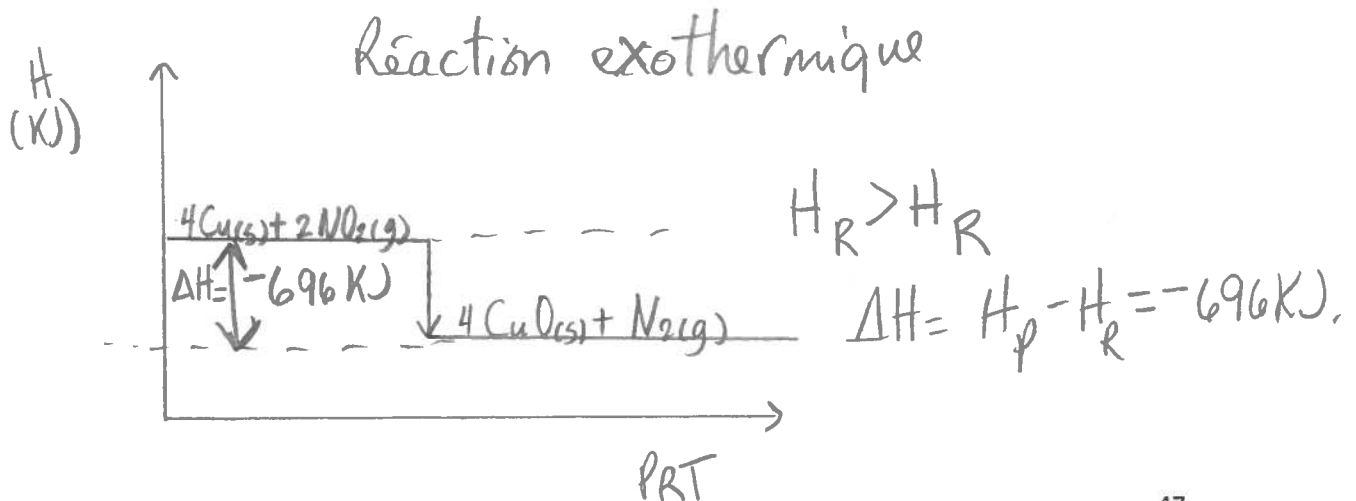 Réaction exothermique
H
(KJ)
4Cu(s) + 2NO2(g)
ΔH= -696 KJ
4 CuO(s) + N2(g)
PRT
H_R > H_R
ΔH= H_p - H_R = -696KJ.